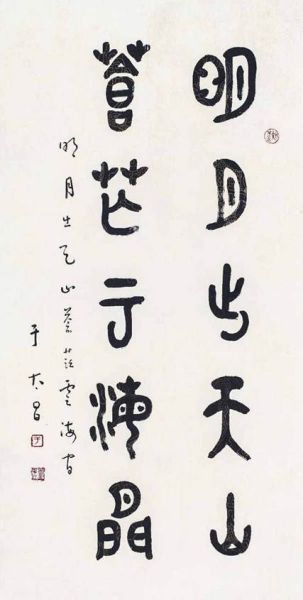 明月出天山
蒼茫云海間
明月出天山蒼茫雲海間
于太昌